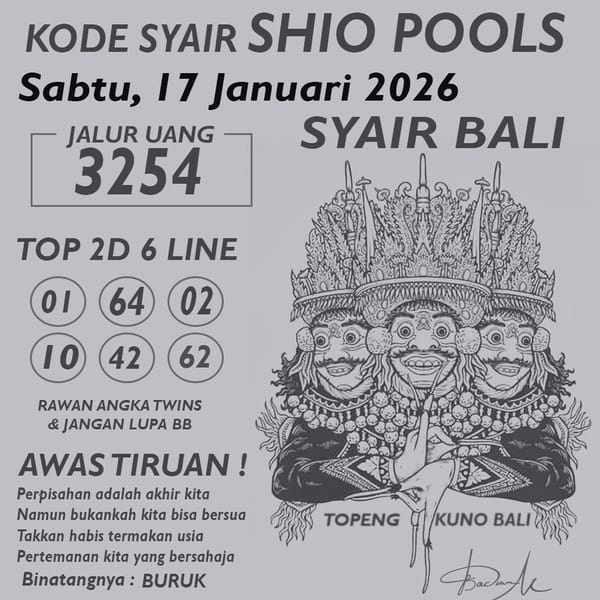 KODE SYAIR SHIO POOLS
Sabtu, 17 Januari 2026
JALUR UANG
3254
SYAIR BALI
TOP 2D 6 LINE
01 64 02
10 42 62
RAWAN ANGKA TWINS
& JANGAN LUPA BB
AWAS TIRUAN !
Perpisahan adalah akhir kita
Namun bukankah kita bisa bersua
Takkan habis termakan usia
Pertemanan kita yang bersahaja
Binatangnya : BURUK
TOPENG KUNO BALI